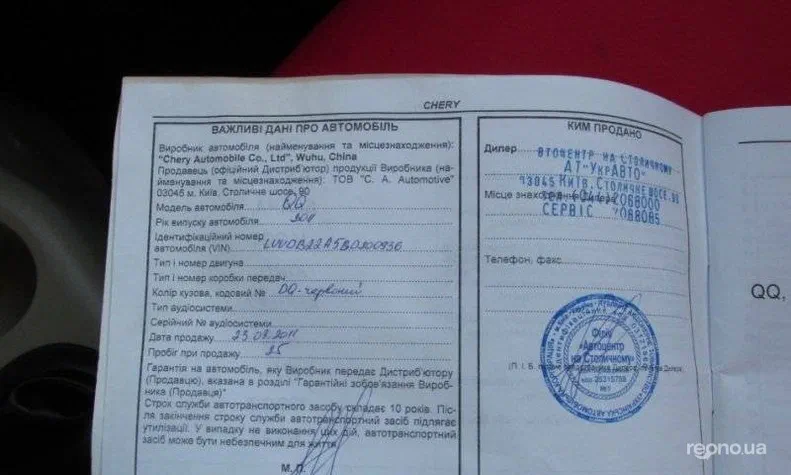 CHERY
ВАЖЛИВІ ДАНІ ПРО АВТОМОБІЛЬ
Виробник автомобіля (найменування та місцезнаходження):
"Chery Automobile Co., Ltd", Wuhu, China
Продавець (офіційний Дистриб'ютор) продукції Виробника (най-
менування та місцезнаходження): ТОВ "С. А. Automotive"
03045 м. Київ, Столичне шосе, 90
Модель автомобіля QQ
Рік випуску автомобіля 2011
Ідентифікаційний номер
автомобіля (VIN)
Тип і номер двигуна
Тип і номер коробки передач
Колір кузова, кодовий № DQ-червоний
Тип аудіосистеми
Серійний № аудіосистеми
Дата продажу 23.09.2011
Пробіг при продажу 25
Гарантія на автомобіль, яку Виробник передає Дистриб'ютору
(Продавцю), вказана в розділі "Гарантійні зобов'язання Вироб-
ника (Продавця)"
Строк служби автотранспортного засобу складає 10 років. Піс-
ля закінчення строку служби автотранспортний засіб підлягає
утилізації. У випадку не виконання цих дій, автотранспортний
засіб може бути небезпечним для життя
М. П.
КИМ ПРОДАНО
Дилер
ВТОЦЕНТР НА СТОЛИЧНОМУ
АТ "УкрАВТО"
03045 КИЇВ, СТОЛИЧНЕ ШОСЕ, 90
Місце знаходження дилера
2068000
СЕРВІС 2068085
Телефон, факс
Філія
«Автоцентр
на Столичному»
(П. І. Б.
QQ,
repno.ua